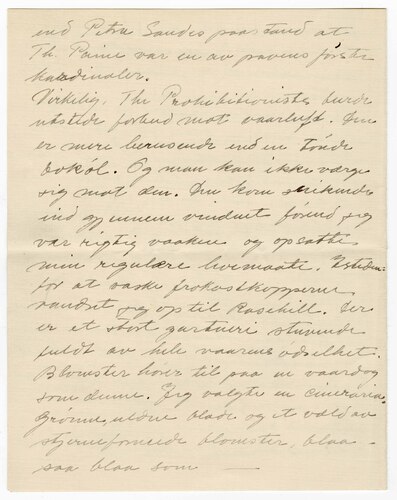 end Petra Sandes paastand at
Th. Paine var en av pavens første
kardinaler.
Virkelig, The Prohibitionists burde
utstede forbud mot vaarluft. Den
er mere berusende end en
Og man kan ikke værge
sig mot den. Den kom
ind gjennem vinduet forend jeg
var rigtig vaaken og opsatte
min regulære levemaate. Isteden-
for at vaske frokostkopperne
vandret jeg op til Rosehill. Der
er et stort gartneri stuvende
fuldt av hele vaarens odselhet.
Blomster hører til paa en vaardag
som denne. Jeg valgte en cineraria.
Grønne, blade og et væld av
stjerneformede blomster, blaa -
saa blaa som